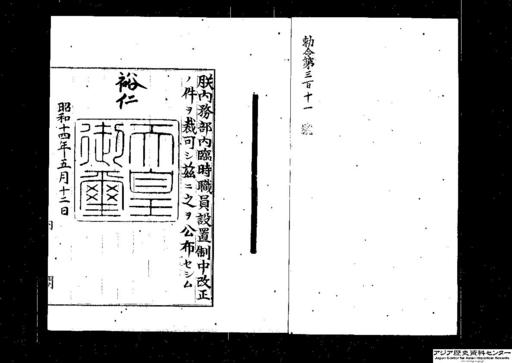 勅令第三百十一號
朕内務部内臨時職員設置制中改正
ノ件ヲ裁可シ茲ニ之ヲ公布セシム
裕仁
天皇御璽
昭和十四年五月十二日
内閣
アジア歴史資料センター
Japan Center for Asian Historical Records